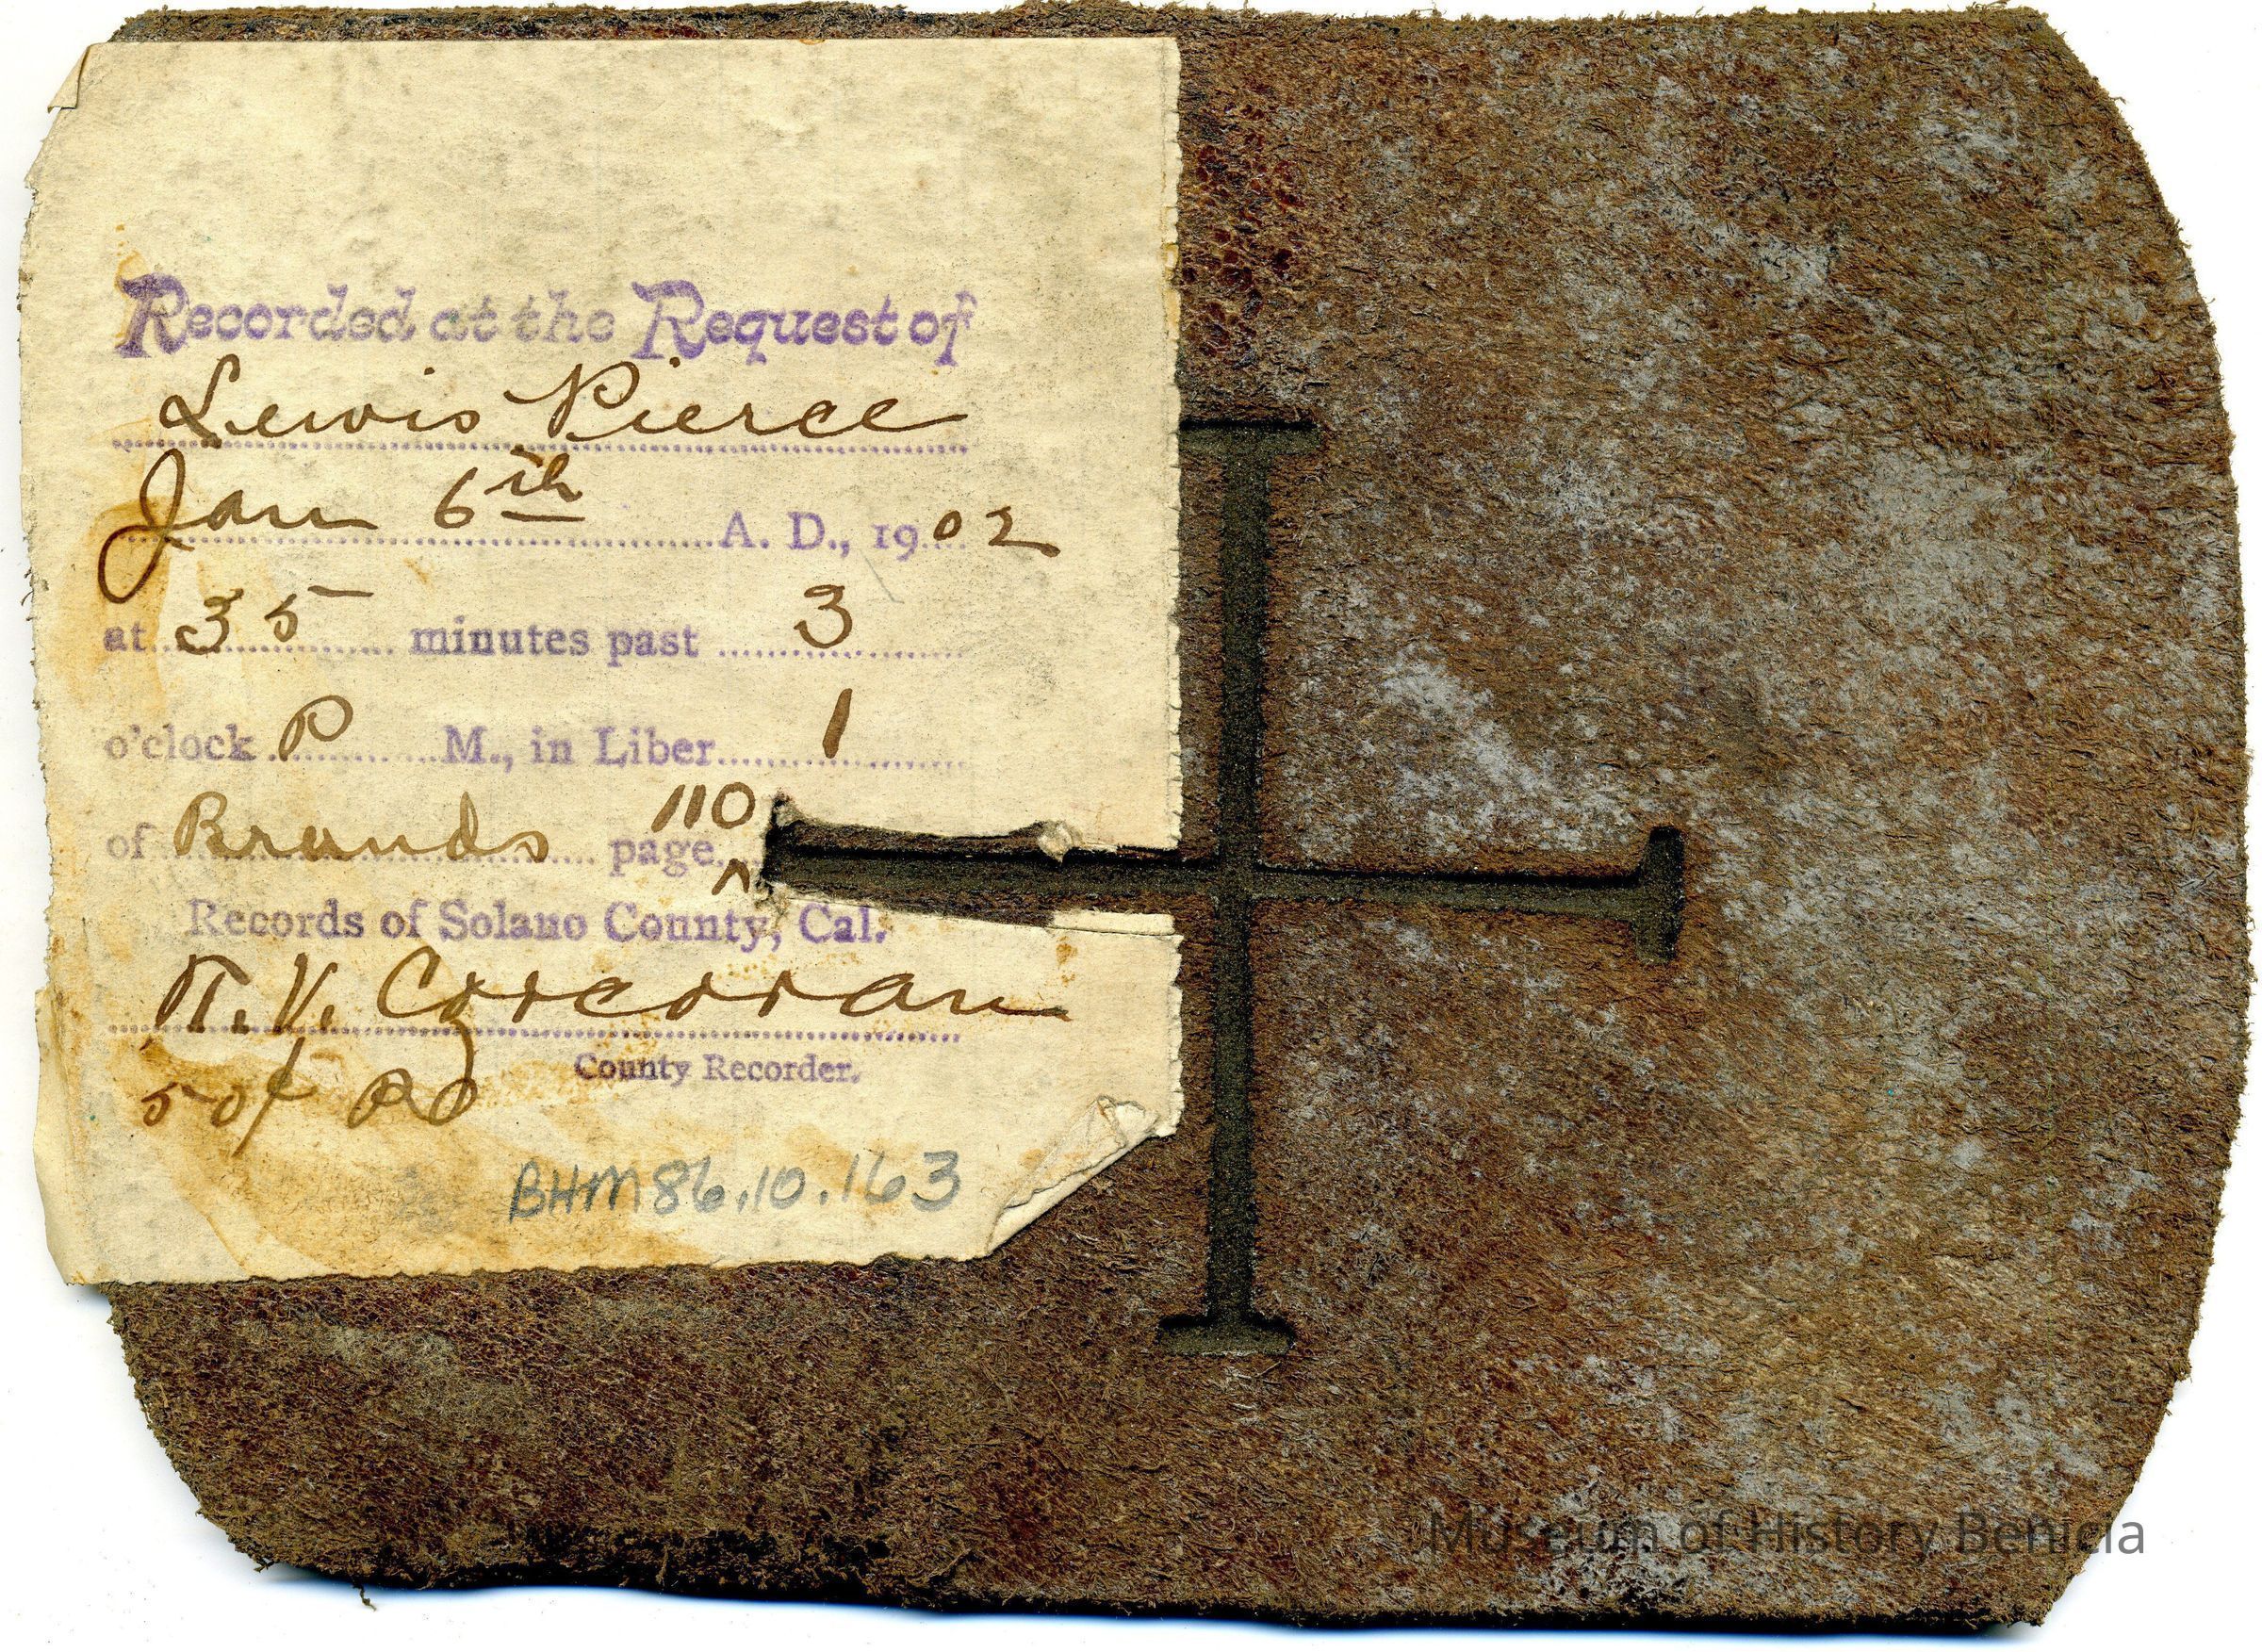 Recorded at the Request of
Lewis Pierce
Jan 6th A. D., 1902
at 35 minutes past 3
o'clock P M., in Liber 1
of Brands page 110
Records of Solano County, Cal.
Corcoran
County Recorder.
50¢ Pd
BHM86.10.163
Museum of History Benicia